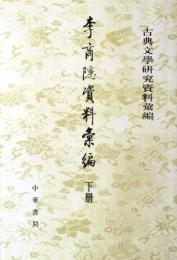 古典文學研究資料彙編
李商隱資料彙編
下册
中華書局